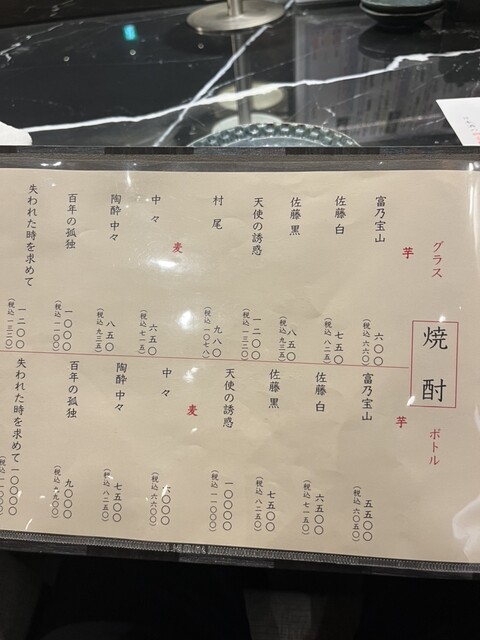 焼酎
グラス
芋
富乃宝山 六〇〇
(税込 六六〇)
佐藤 白 七五〇
(税込 八二五)
佐藤 黒 八五〇
(税込 九三五)
天使の誘惑 一二〇〇
(税込 一三二〇)
村尾 九八〇
(税込 一〇七八)
麦
中々 六五〇
(税込 七一五)
陶酔 中々 八五〇
(税込 九三五)
百年の孤独 一〇〇〇
(税込 一一〇〇)
失われた時を求めて 一二〇〇
(税込 一三二〇)
ボトル
芋
富乃宝山 五五〇〇
(税込 六〇五〇)
佐藤 白 六五〇〇
(税込 七一五〇)
佐藤 黒 七五〇〇
(税込 八二五〇)
天使の誘惑 一〇〇〇〇
(税込 一一〇〇〇)
麦
中々 六〇〇〇
(税込 六六〇〇)
陶酔 中々 七五〇〇
(税込 八二五〇)
百年の孤独 九〇〇〇
(税込 九九〇〇)
失われた時を求めて 一〇〇〇〇
(税込 一一〇〇〇)